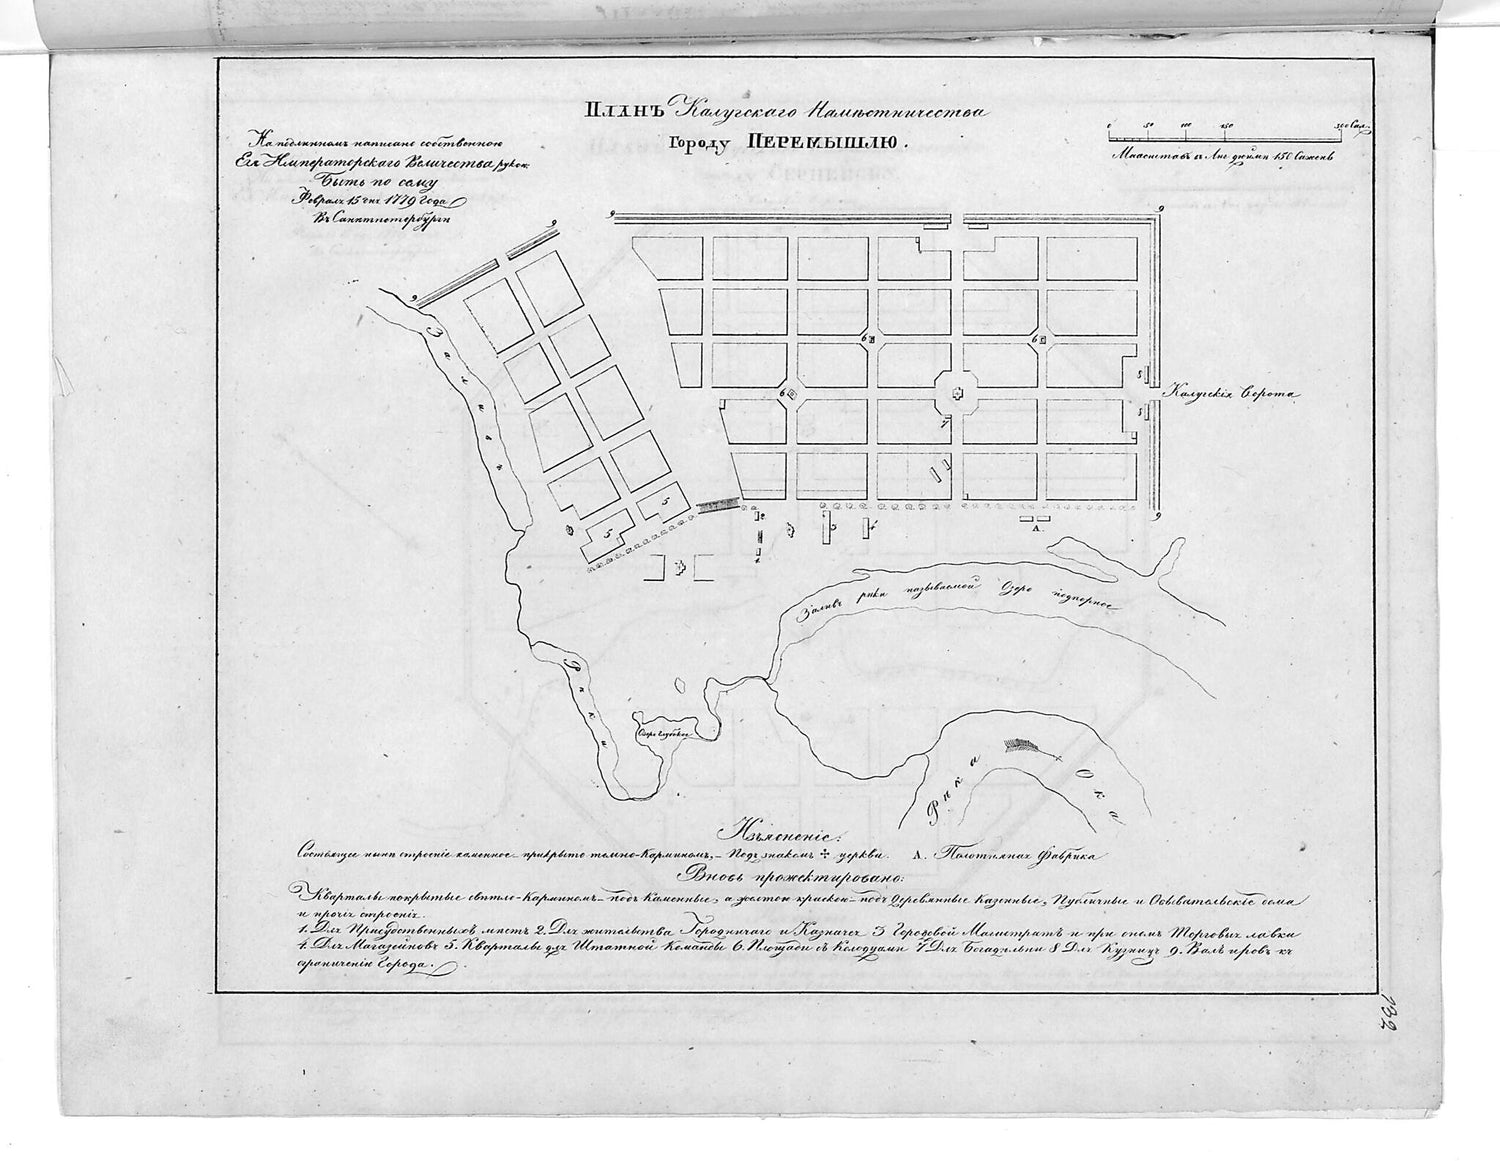 Планъ Калугскаго Намѣстничества
Городу Перемышлю.
На подлинномъ написано собственною
Ея Императорскаго Величества рукою
Быть по сему
Февраля 15 дня 1779 Года
Въ Санктпетербургѣ
0 50 100 150 300 Саж.
Маасштабъ въ Анг. дюймѣ 150 Сажень
9 9 9 9
9
6 6
8
Калугскія Ворота
6
8
7
5 5
9
2 3 4
А.
Заливъ рѣки называемой Озеро подгорное
Рѣки
Озеро глубокое
Рѣка Ока
Изъясненіе:
Состоящее нынѣ строеніе каменное прикрыто темно-Карминомъ, – Подъ знакомъ ✣ церкви. А. Полотняная Фабрика
Вновь прожектировано:
Кварталы покрытые свѣтло-Карминомъ – подъ Каменные, а желтою краскою – подъ Деревянные Казенные, Публичные и Обывательскіе домы
и прочія строенія.
1. Для Присудственныхъ мѣстъ 2. Для жительства Городничаго и Казначея 3 Городовой Магистратъ и при ономъ Торговыя лавки
4. Для Магазейновъ 5. Кварталы для Штатной Команды 6. Площади съ Колодцами 7 Для Богадѣльни 8 Для Кузницъ 9. Валъ и ровъ къ
ограниченію Города.
132